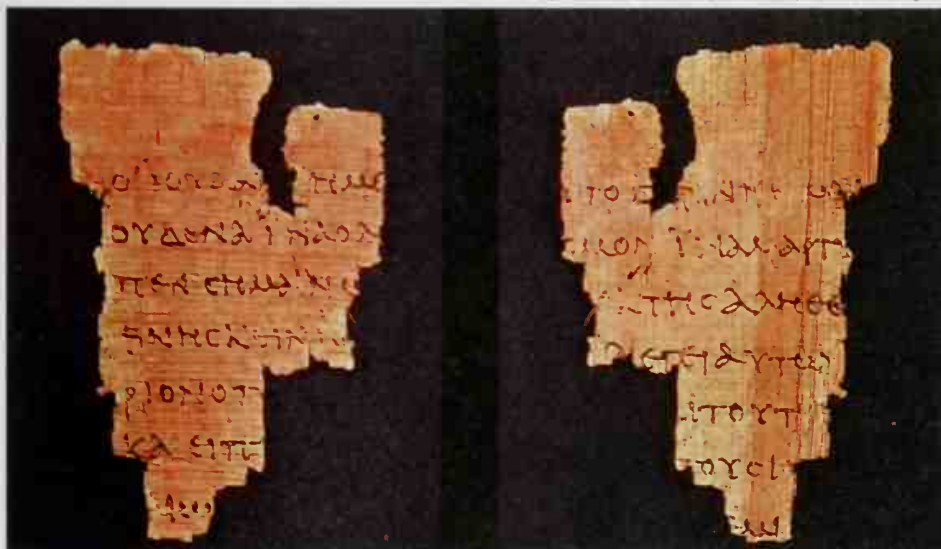 ΟΙ ΙΟΥΔΑΙ ΗΜΕ
ΟΥΔΕΝΑ ΙΝΑ Ο Λ
ΠΕΝ ϹΗΜΑΙΝΩ
ΘΝΗϹΚΕΙΝ
ΡΙΟΝ Ο Π
ΚΑΙ ΕΙΠ
ΑΙΩ
ΤΟ
ϹΜΟΝ ΙΝΑ ΜΑΡΤΥ
ΕΚ ΤΗϹ ΑΛΗΘΕ
ΛΕΓΕΙ ΑΥΤΩ
ΑΙ ΤΟΥΤ
ΤΟΥϹ Ι
ΜΙ